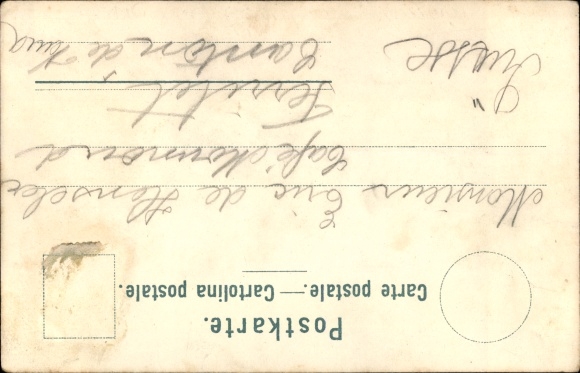 Postkarte.
Carte postale. — Cartolina postale.
Monsieur Eric de
Café Normand
Territet,
Canton de Vaud
Suisse